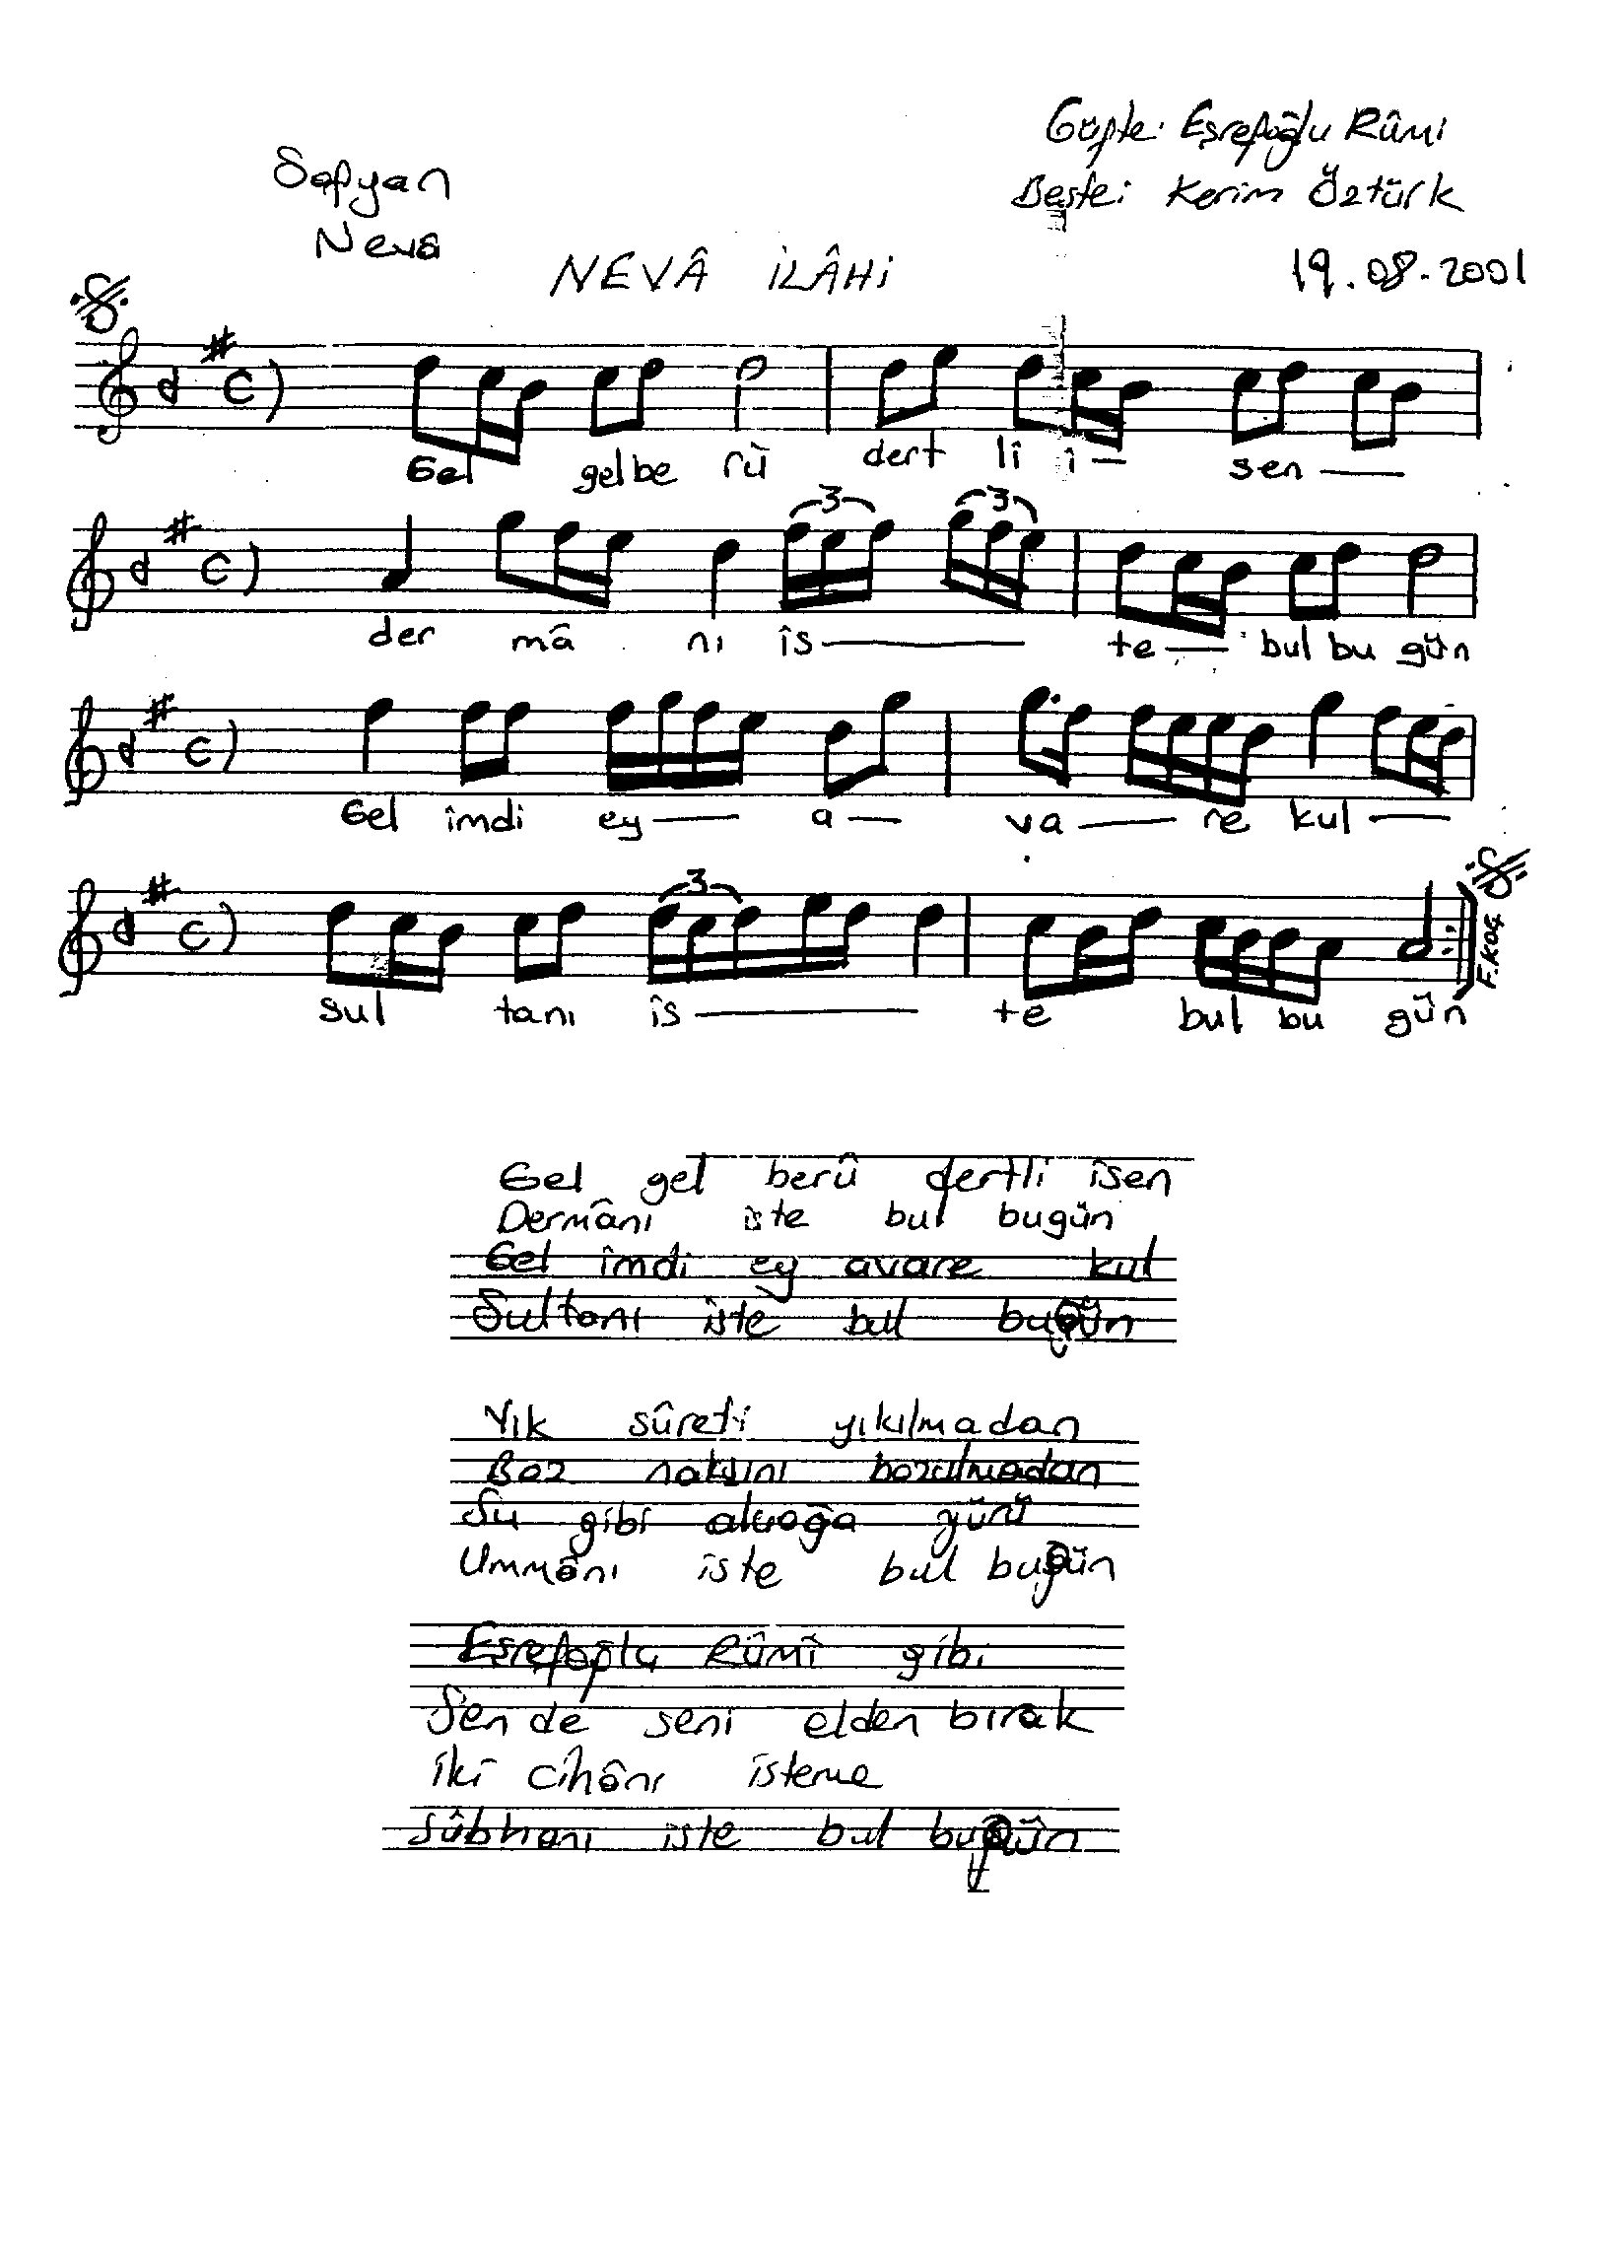 Güfte: Eşrefoğlu Rûmi
Sofyan
Beste: Kerim Öztürk
Nevâ
NEVÂ İLÂHİ
19.08.2001
Gel gel be rü dert lî î — sen —
3 3
der mâ nı îs — te — bul bu gün
Gel îmdi ey — a — va — re kul —
3
F.KOÇ
sul tanı îs — te bul bu gün
Gel gel berû dertli îsen
Dermânı iste bul bugün
Gel îmdi ey avare kul
Sultanı îste bul bugün
Yık sûreti yıkılmadan
Boz nakşını bozulmadan
Su gibi alçağa yürü
Ummânı îste bul bugün
Eşrefoğlu Rûmî gibi
Sen de seni elden bırak
İkî cîhânı îsteme
Sûbhanı iste bul bugün